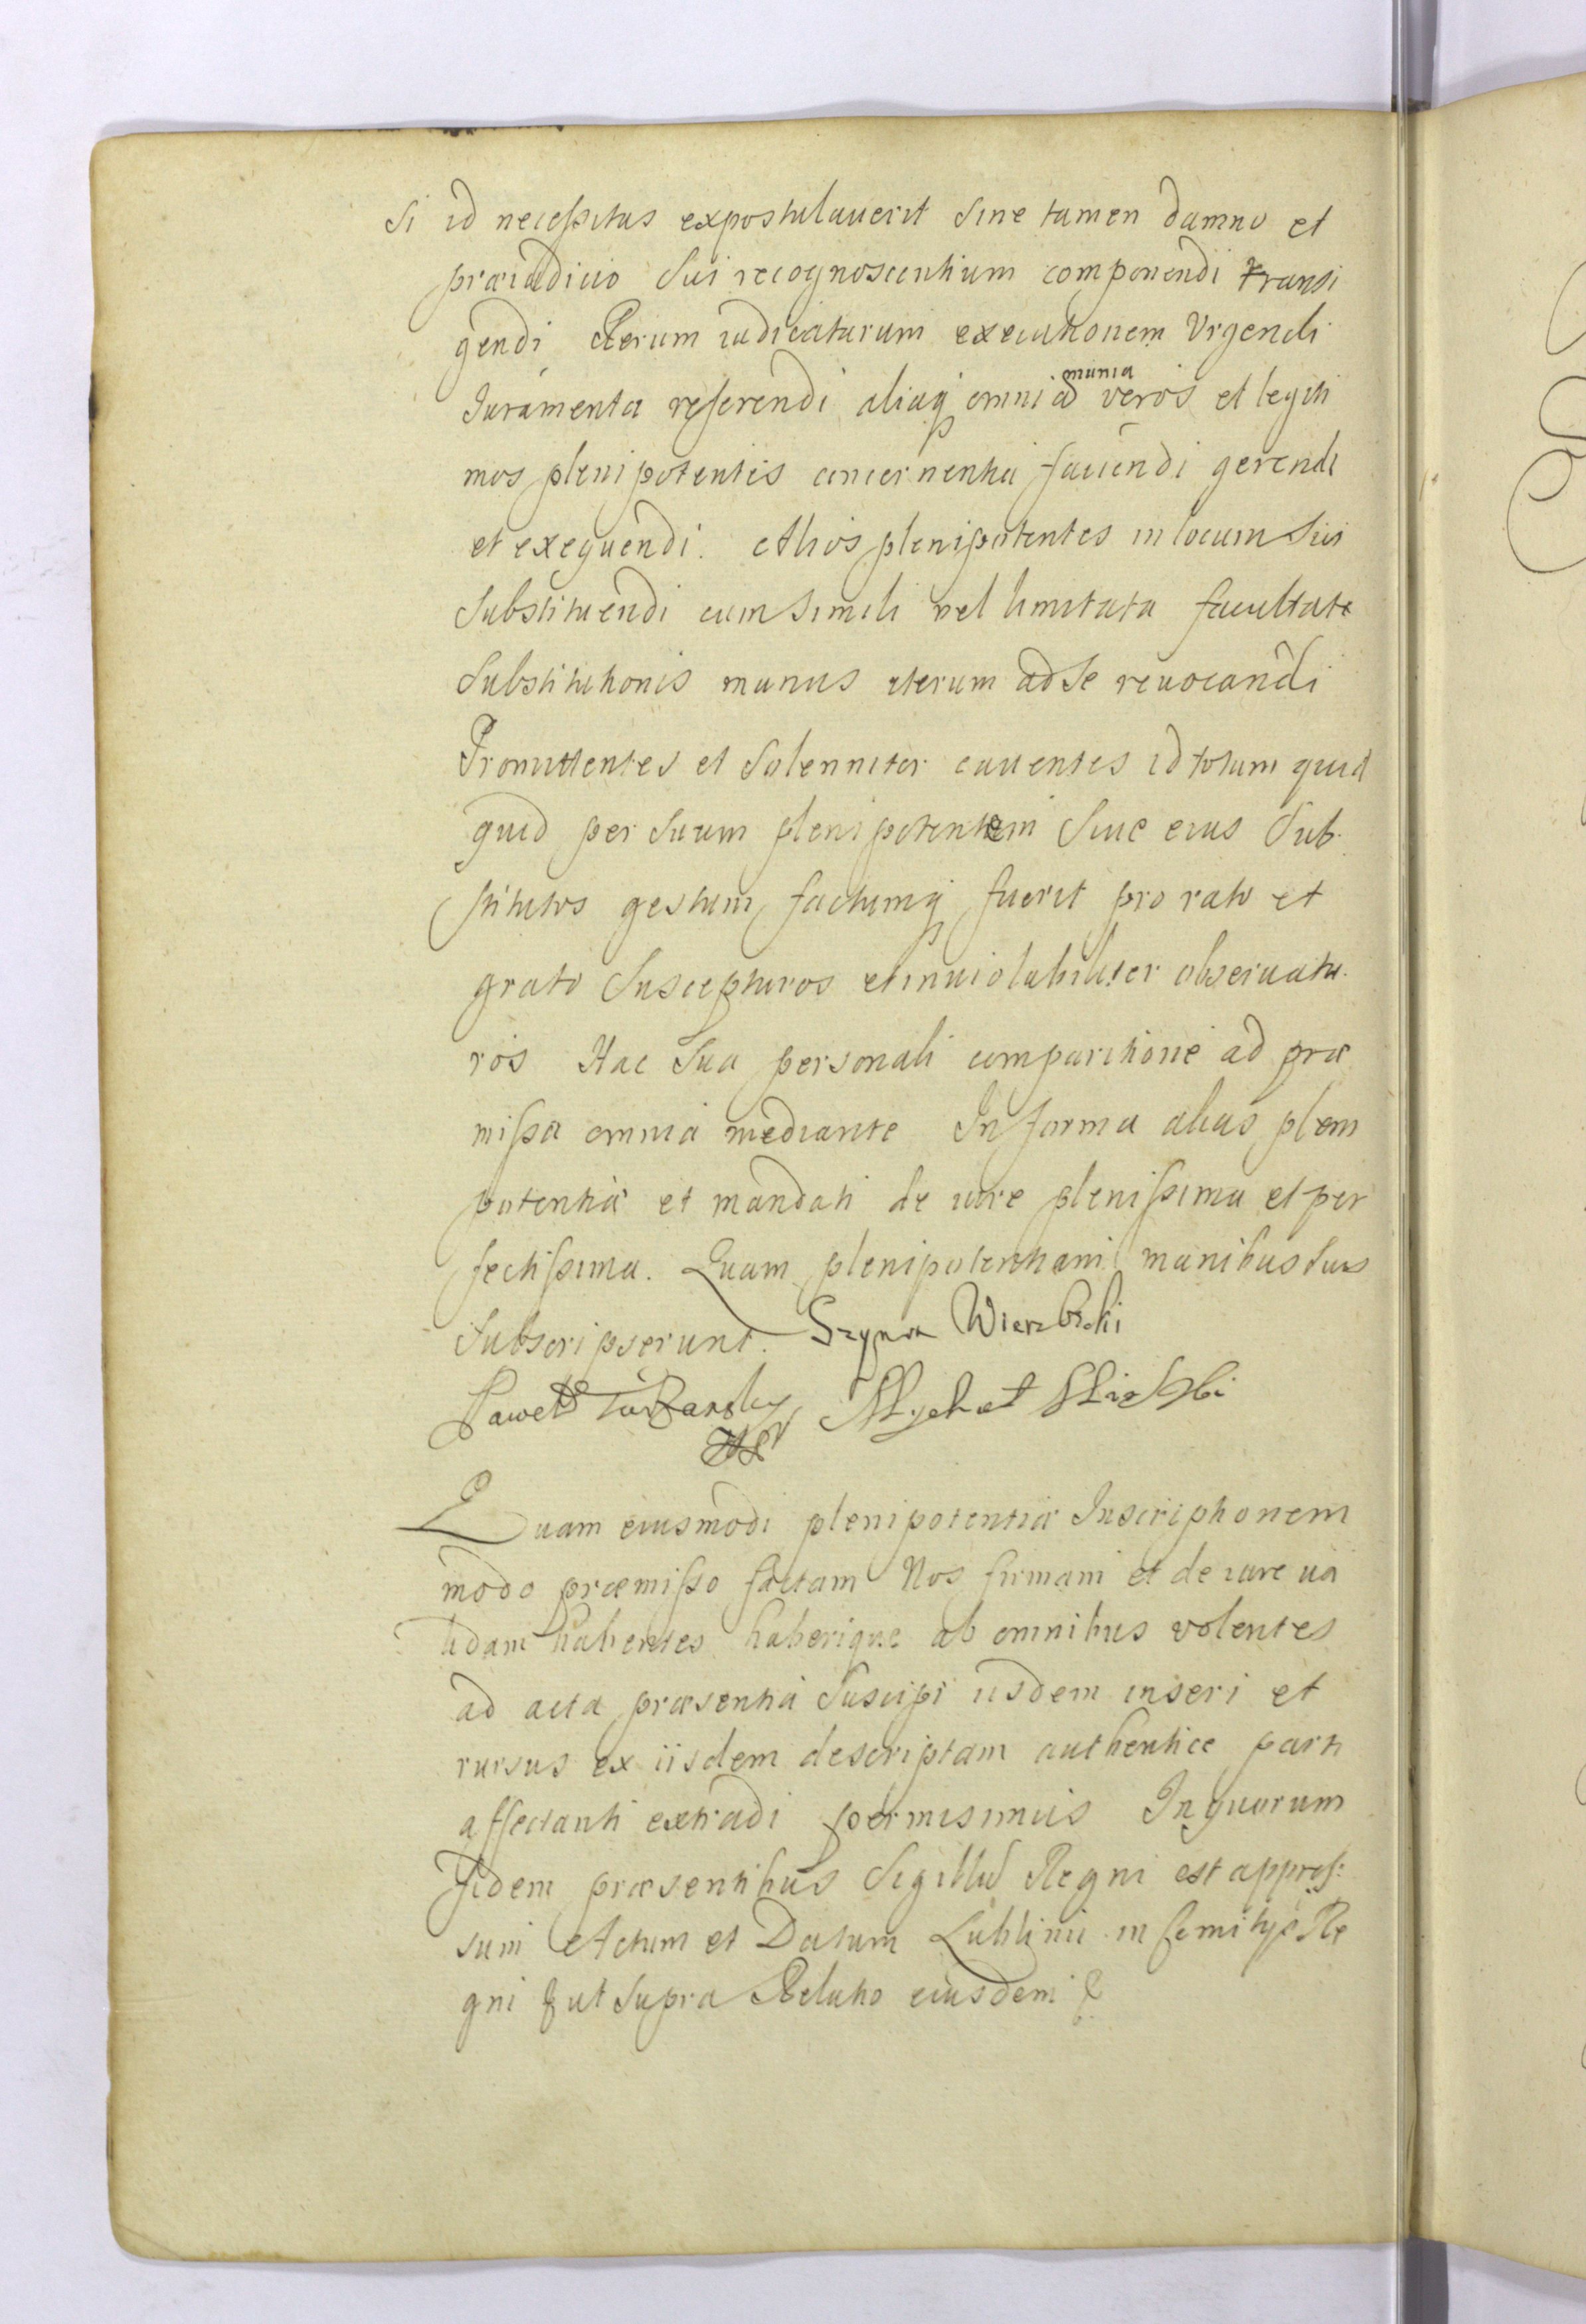 Si id necessitas expostulauerit Sine tamen damno et
præiudicio Sui recognoscentium componendi transi
gendi Rerum iudicatarum executionem Vrgendi
Iuramenta referendi aliaq omnia ad munia veros et legiti
mos plenipotentes concernentia faciendi gerendi
et exequendi. Alios plenipotentes in locum Sui
Substituendi cum Simili vel limitata facultate
Substitutionis munus iterum ad Se reuocandi
Promittentes et Solenniter cauentes id totum quid
quid per Suum plenipotentem Siue eius Sub
stitutos gestum factumq fuerit pro rato et
grato Suscepturos et inuiolabiliter obseruatu
ros Hac Sua personali comparitione ad præ
missa omnia mediante In forma alias pleni
potentiæ et mandati de iure plenissima et per
fectissima. Quam plenipotentiam manibus Suis
Subscripserunt. Szymon Wierzbicki
Paweł
Quam eiusmodi plenipotentiæ Inscriptionem
modo præmisso factam Nos firmam et de iure ua
lidam habentes haberique ab omnibus volentes
ad acta præsentia Suscipi iisdem inseri et
rursus ex iisdem descriptam authentice parti
affectanti extradi permisimus In quorum
fidem præsentibus Sigillũ Regni est appres:
sum Actum et Datum Lublini in Comitijs Re
gni & ut Supra Relatio eiusdem &